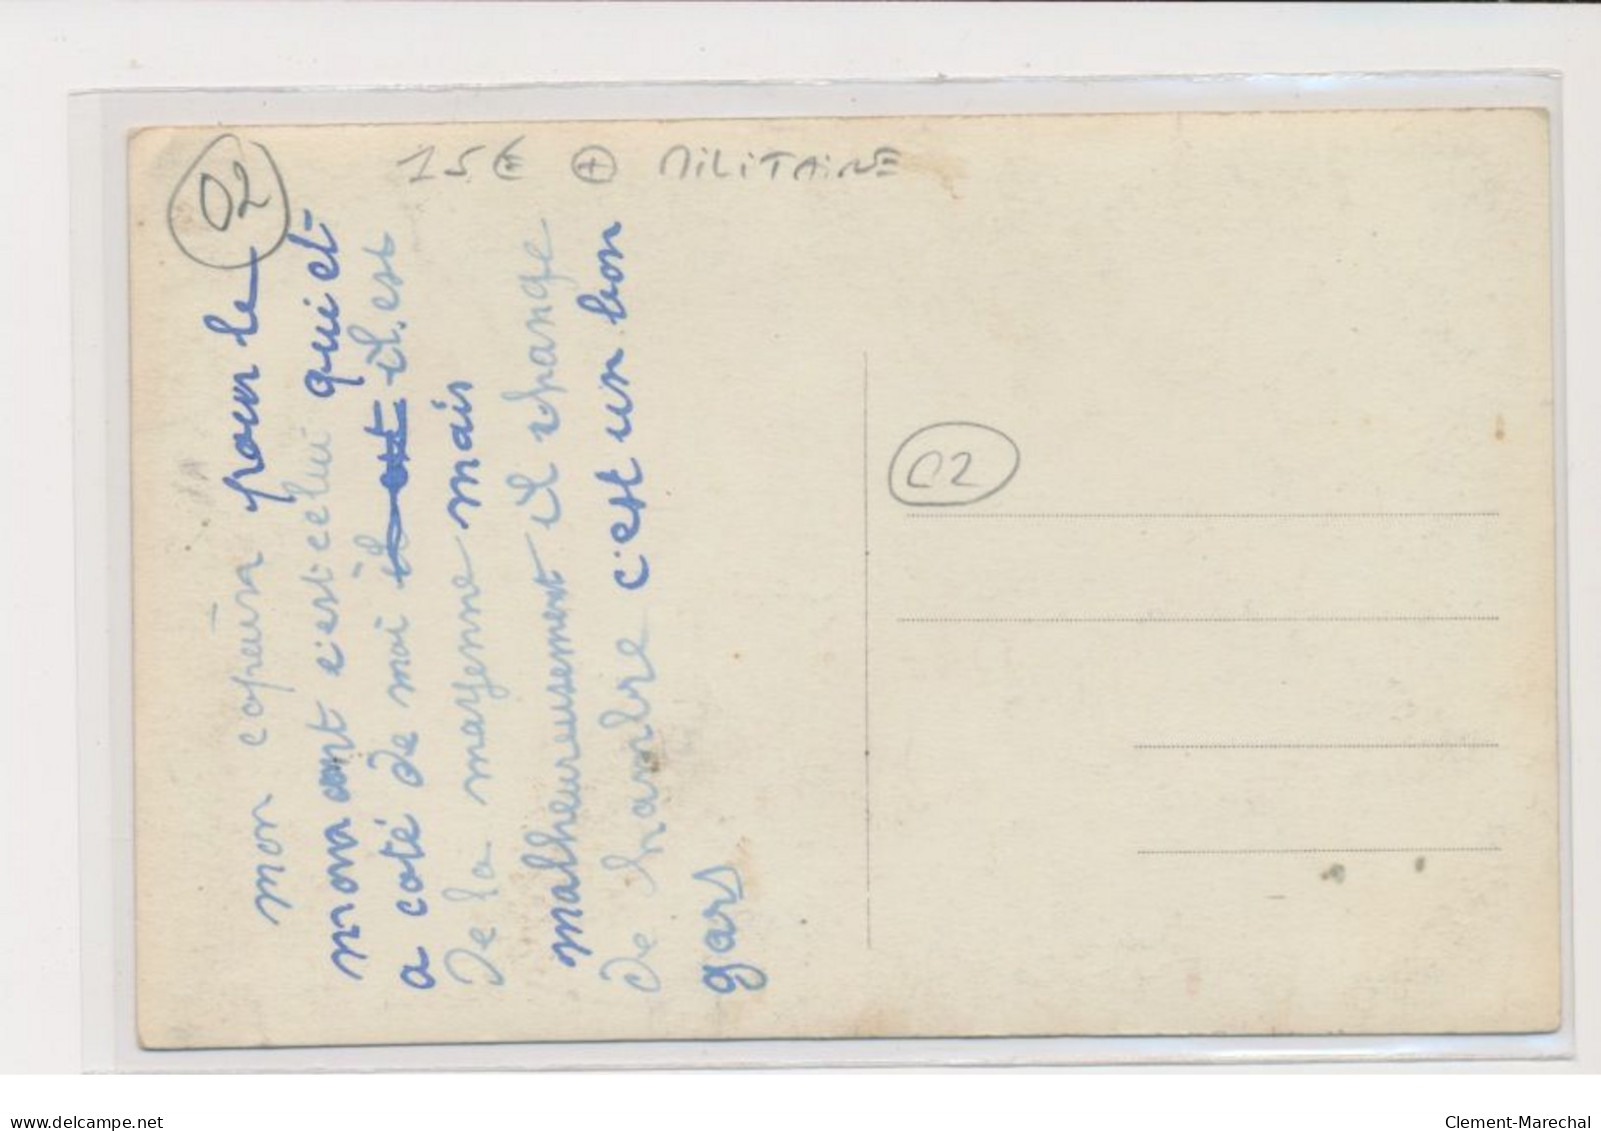 02
15€ + MILITAIRE
mon copain pour le
moment c'est celui qui et
a coté de moi il est il est
De la mayenne mais
malheureusement il change
De hambre c'est un bon
gars
02
www.delcampe.net
Clement-Marechal